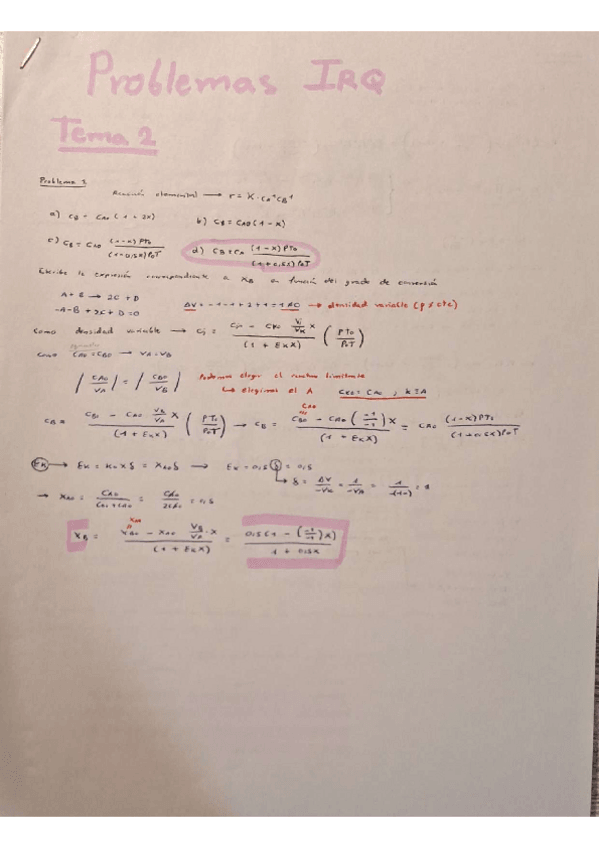 Problemas IRQ
Tema 2
Problema 1
Reacción elemental → r = K · CA^1 CB^1
a) CB = CAO (1 + 2x)
b) CB = CAO (1 - x)
c) CB = CAO (1-x) PTo / (1-0,5x) PoT
d) CB = CA (1-x) PTo / (1+0,5x) PoT
Escribe la expresión correspondiente a XB en función del grado de conversión
A + B → 2C + D
-A-B + 2C + D = 0
ΔV = -1-1+2+1 = 1 ≠ 0 → densidad variable (ρ ≠ cte)
Como densidad variable → Cj = (Cjo - CKo (Vj/VK) x) / (1 + EKX) (PTo/PoT)
CAO = CBO → VA = VB
|CAO/VA| = |CBO/VB|
Podemos elegir el reactivo limitante
↳ elegimos el A CKO = CAO ; K ≡ A
CB = (CBO - CAO (VB/VA) x) / (1 + EKX) (PTo/PoT) → CB = (CBO - CAO (-1/-1) X) / (1 + EKX) = CAO (1-x) PTo / (1+0,5x) PoT
CAO
EK → EK = XKo δ = XAO δ → EK = 0,5 δ = 0,5
↳ δ = ΔV/-VK = 1/-VA = 1/-(-1) = 1
→ XAO = CAO / (CAO + CBO) = CAO / 2CAO = 0,5
XAO
XB = (XBO - XAO (VB/VA) · X) / (1 + EKX) = 0,5 (1 - (-1/-1) X) / (1 + 0,5X)